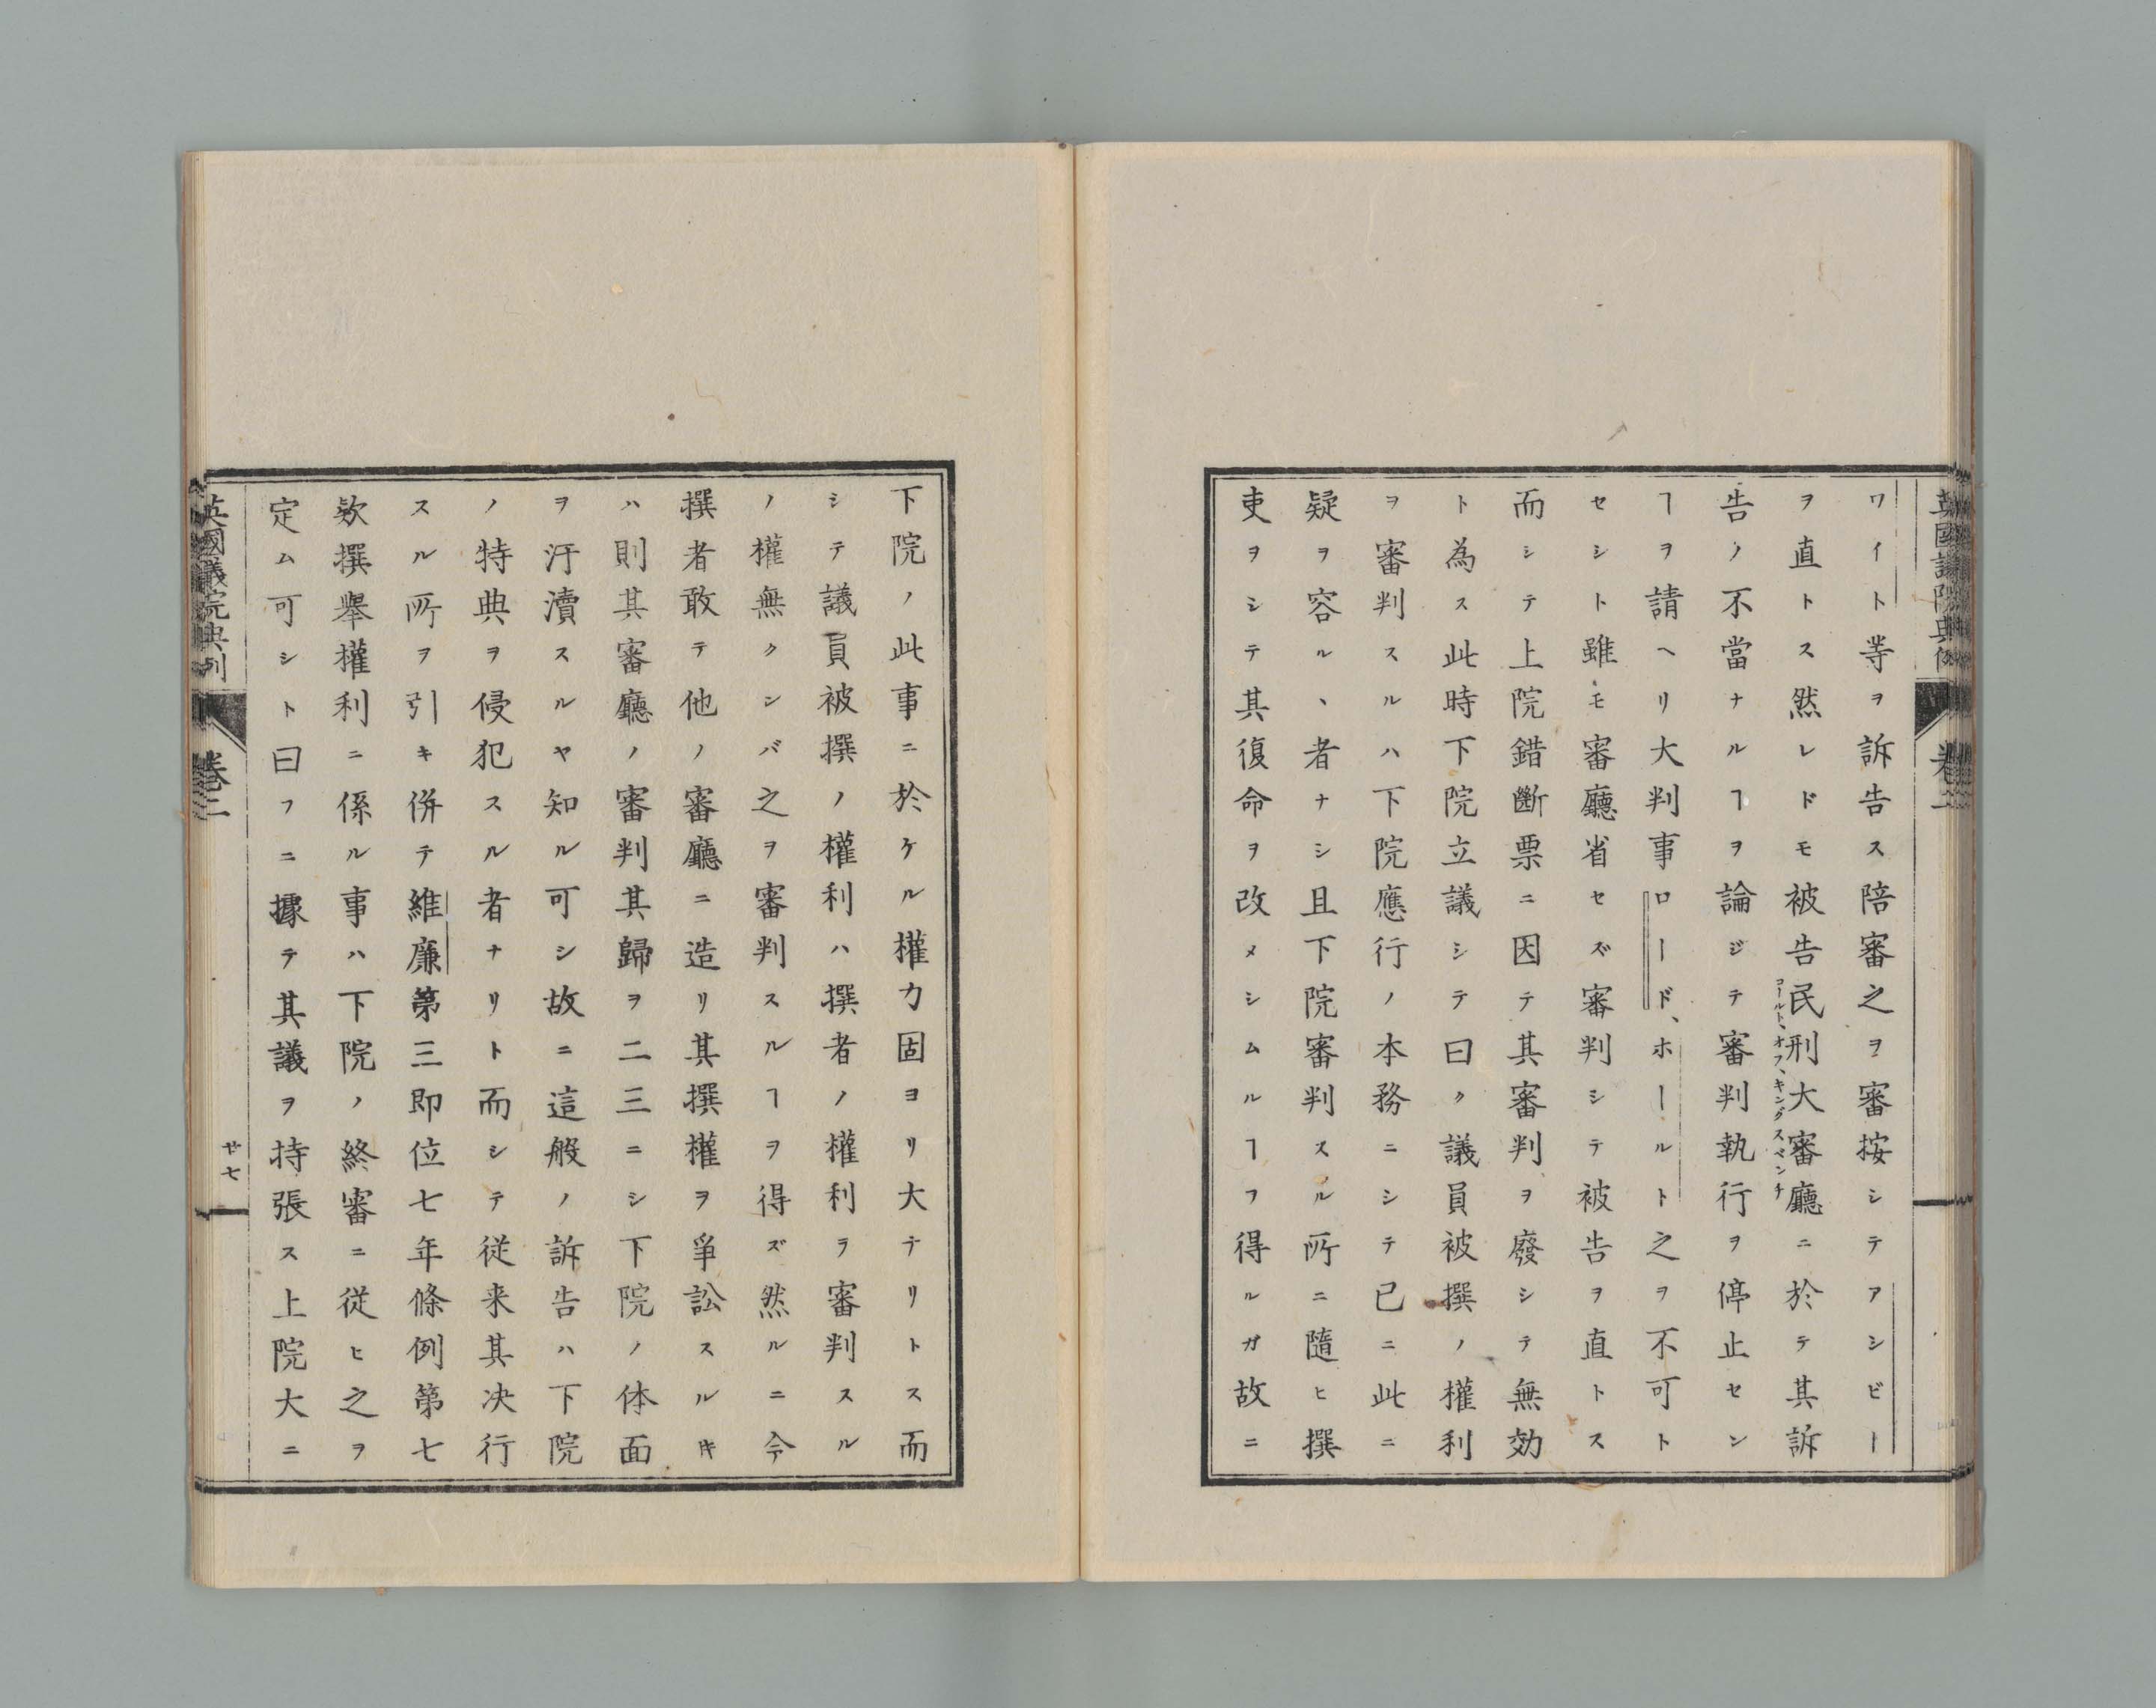 ワイト等ヲ訴告ス陪審之ヲ審按シテアシビー
ヲ直トス然レドモ被告民刑大審廳ニ於テ其訴
コールト、オフ、キングスベンチ
告ノ不當ナルヿヲ論ジテ審判執行ヲ停止セン
ヿヲ請ヘリ大判事ロード、ホールト之ヲ不可ト
セシト雖モ審廳省セズ審判シテ被告ヲ直トス
而シテ上院錯斷票ニ因テ其審判ヲ廢シテ無効
ト為ス此時下院立議シテ曰ク議員被撰ノ權利
ヲ審判スルハ下院應行ノ本務ニシテ已ニ此ニ
疑ヲ容ル、者ナシ且下院審判スル所ニ隨ヒ撰
吏ヲシテ其復命ヲ改メシムルヿフ得ルガ故ニ
英國議院典例 卷二
下院ノ此事ニ於ケル權力固ヨリ大テリトス而
シテ議員被撰ノ權利ハ撰者ノ權利ヲ審判スル
ノ權無クンバ之ヲ審判スルヿヲ得ズ然ルニ今
撰者敢テ他ノ審廳ニ造リ其撰權ヲ爭訟スルキ
ハ則其審廳ノ審判其歸ヲ二三ニシ下院ノ体面
ヲ汙瀆スルヤ知ル可シ故ニ這般ノ訴告ハ下院
ノ特典ヲ侵犯スル者ナリト而シテ従来其决行
スル所ヲ引キ併テ維廉第三即位七年條例第七
欸撰舉權利ニ係ル事ハ下院ノ終審ニ従ヒ之ヲ
定ム可シト曰フニ據テ其議ヲ持張ス上院大ニ
英國議院典例 卷二 廿七